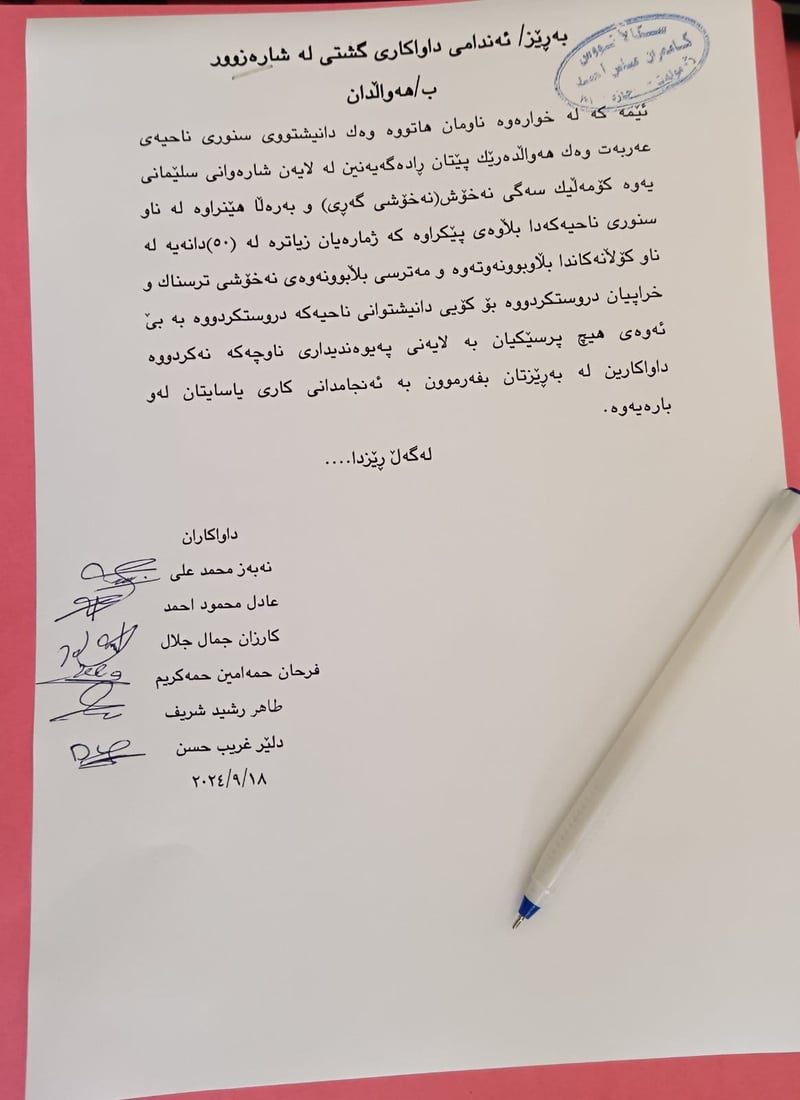 بەڕێز/ ئەندامی داواکاری گشتی لە شارەزوور
سکاڵا نووس
کامەران عباس احمد
ب/هەواڵدان
ئێمە کە لە خوارەوە ناومان هاتووە وەك دانیشتووی سنوری ناحیەی
عەربەت وەك هەواڵدەرێك پێتان ڕادەگەیەنین لە لایەن شارەوانی سلێمانی
یەوە کۆمەڵێك سەگی نەخۆش(نەخۆشی گەڕی) و بەرەڵا هێنراوە لە ناو
سنوری ناحیەکەدا بڵاوەی پێکراوە کە ژمارەیان زیاترە لە (٥٠)دانەیە لە
ناو کۆڵانەکاندا بڵاوبوونەوتەوە و مەترسی بڵابوونەوەی نەخۆشی ترسناك و
خراپیان دروستکردووە بۆ کۆیی دانیشتوانی ناحیەکە دروستکردووە بە بێ
ئەوەی هیچ پرسێکیان بە لایەنی پەیوەندیداری ناوچەکە نەکردووە
داواکارین لە بەڕێزتان بفەرموون بە ئەنجامدانی کاری یاسایتان لەو
بارەیەوە.
لەگەڵ ڕێزدا....
داواکاران
نەبەز محمد علی
عادل محمود احمد
کارزان جمال جلال
فرحان حمەامین حمەکریم
طاهر رشید شریف
دلێر غریب حسن
٢٠٢٤/٩/١٨